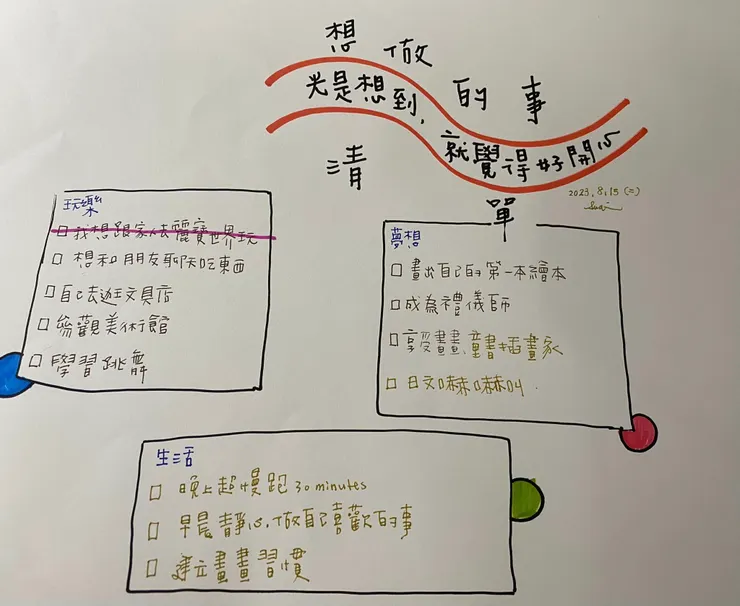 想做的事
光是想到,就覺得好開心
清單
2023,8,15(二)
玩樂
我想跟家人去麗寶世界玩
想和朋友聊天吃東西
自己去逛文具店
參觀美術館
學習跳舞
夢想
畫出自己的第一本繪本
成為禮儀師
享受畫畫,童書插畫家
日文嚇嚇叫.
生活
晚上超慢跑30 minutes
早晨靜心,做自己喜歡的事
建立畫畫習慣